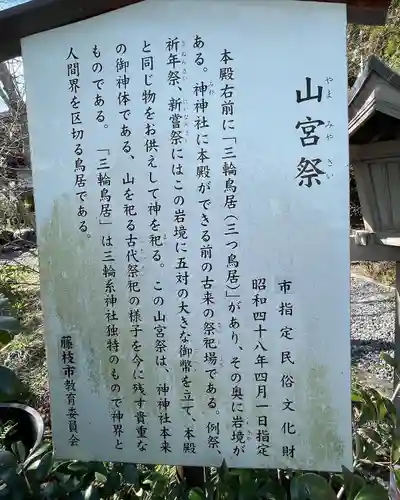 山宮祭
やま みや さい
市指定民俗文化財
昭和四十八年四月一日指定
本殿右前に「三輪鳥居(三つ鳥居)」があり、その奥に岩境が
ある。神神社に本殿ができる前の古来の祭祀場である。例祭、
みわ
祈年祭、新嘗祭にはこの岩境に五対の大きな御幣を立て、本殿
と同じ物をお供えして神を祀る。この山宮祭は、神神社本来
の御神体である、山を祀る古代祭祀の様子を今に残す貴重な
ものである。「三輪鳥居」は三輪系神社独特のもので神界と
人間界を区切る鳥居である。
藤枝市教育委員会